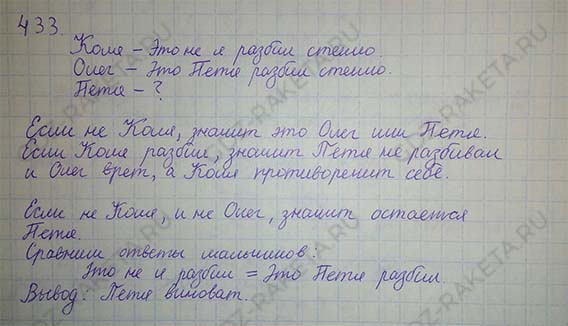 433.
Коля – Это не я разбил стекло.
Олег – Это Петя разбил стекло.
Петя – ?
Если не Коля, значит это Олег или Петя.
Если Коля разбил, значит Петя не разбивал
и Олег врет, а Коля противоречит себе.
Если не Коля, и не Олег, значит остается
Петя.
Сравним ответы мальчиков:
Это не я разбил = Это Петя разбил.
Вывод: Петя виноват.
GDZ-RAKETA.RU